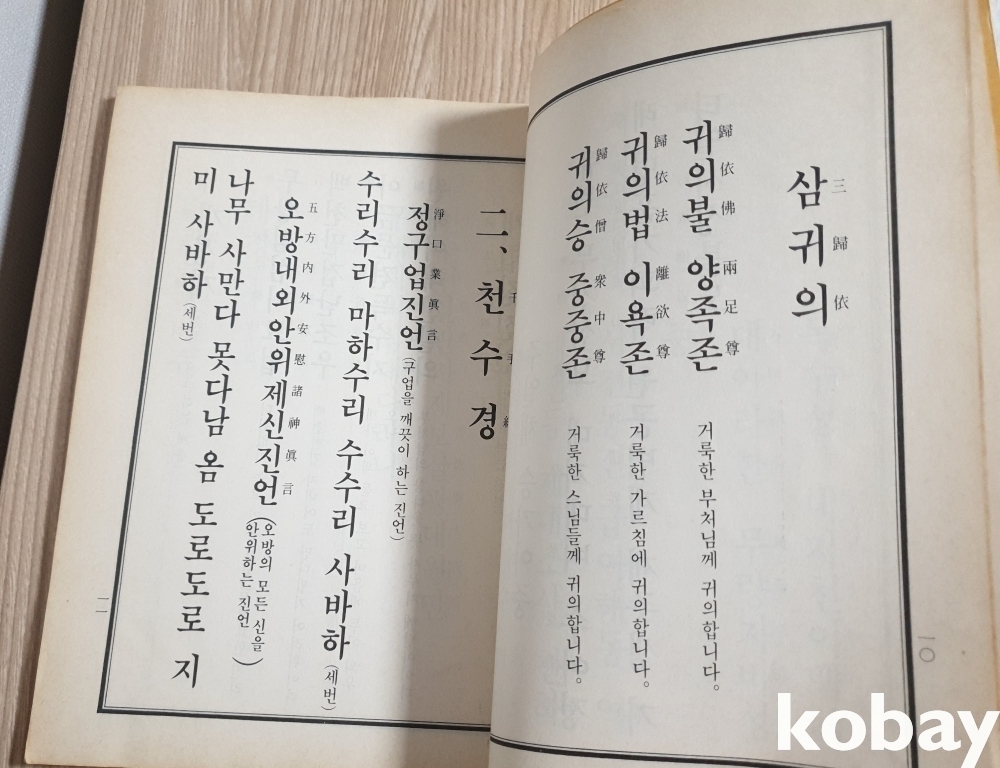 三歸依
삼귀의
歸依佛 兩足尊
귀의불 양족존
거룩한 부처님께 귀의합니다。
歸依法 離欲尊
귀의법 이욕존
거룩한 가르침에 귀의합니다。
歸依僧 衆中尊
귀의승 중중존
거룩한 스님들께 귀의합니다。
一〇
千手
二、천수경
淨口業眞言
정구업진언(구업을 깨끗이 하는 진언)
수리수리 마하수리 수수리 사바하(세번)
五方内外安慰諸神眞言
오방내외안위제신진언(오방의 모든 신을
안위하는 진언)
나무 사만다 못다남 옴 도로도로 지
미 사바하(세번)
一一
kobay